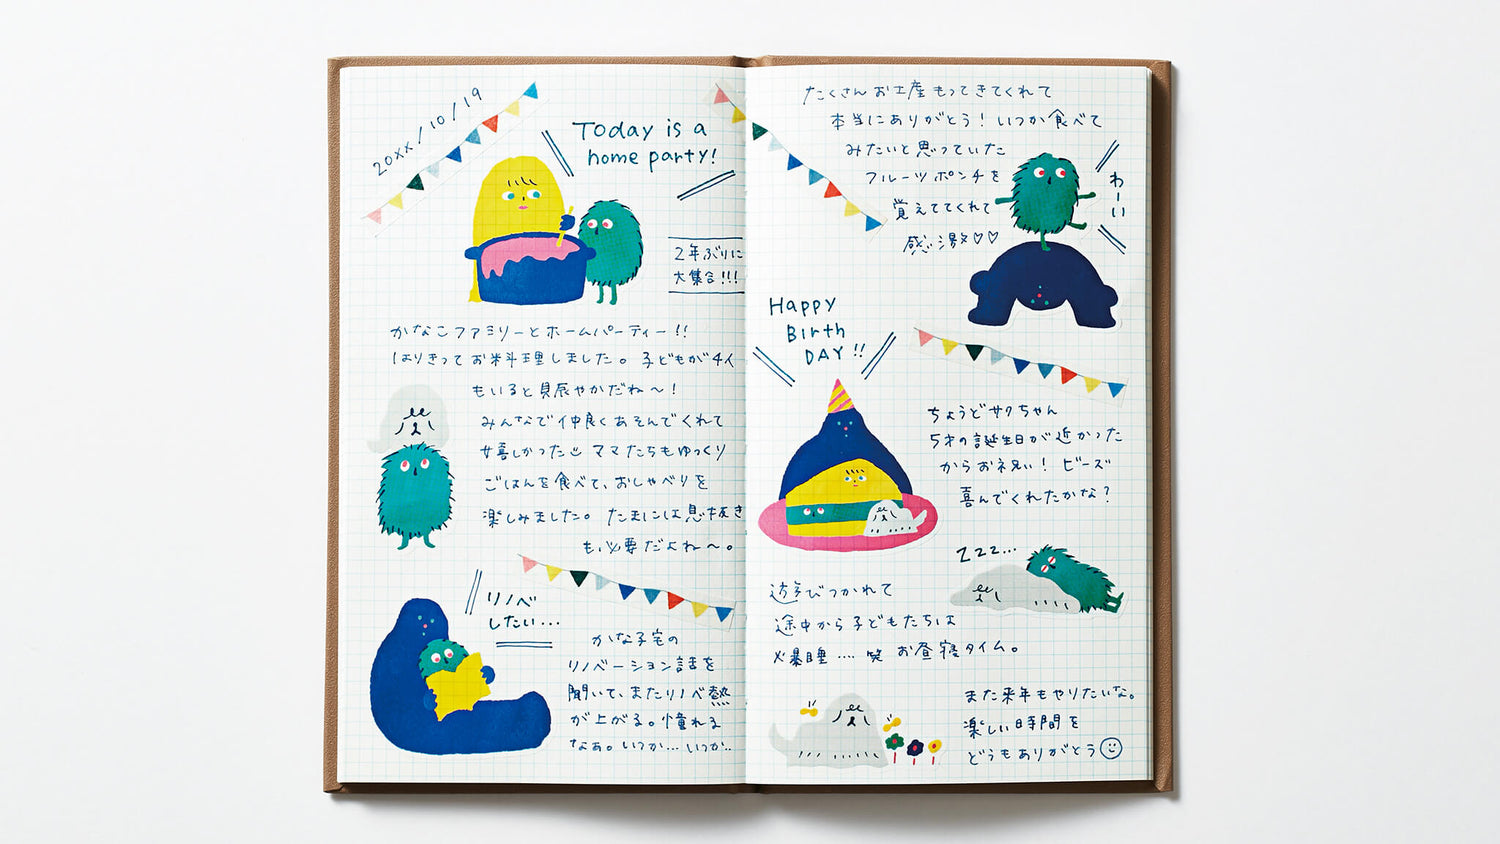 20xx/10/19
Today is a
home party!
2年ぶりに
大集合!!!
かなこファミリーとホームパーティー!!
はりきってお料理しました。子どもが4人
もいると賑やかだね〜!
みんなで仲良くあそんでくれて
嬉しかった ママたちもゆっくり
ごはんを食べて、おしゃべりを
楽しみました。たまには息抜き
も必要だよね〜。
リノベ
したい...
かな子宅の
リノベーション話を
聞いて、またリノベ熱
が上がる。憧れる
なぁ。いつか...いつか..
たくさんお土産もってきてくれて
本当にありがとう!いつか食べて
みたいと思っていた
フルーツポンチを
覚えててくれて
感激♡♡
わーい
Happy
Birth
DAY!!
ちょうどサクちゃん
5才の誕生日が近かった
からお祝い!ビーズ
喜んでくれたかな?
Zzz...
遊びつかれて
途中から子どもたちは
爆睡....笑 お昼寝タイム。
また来年もやりたいな。
楽しい時間を
どうもありがとう